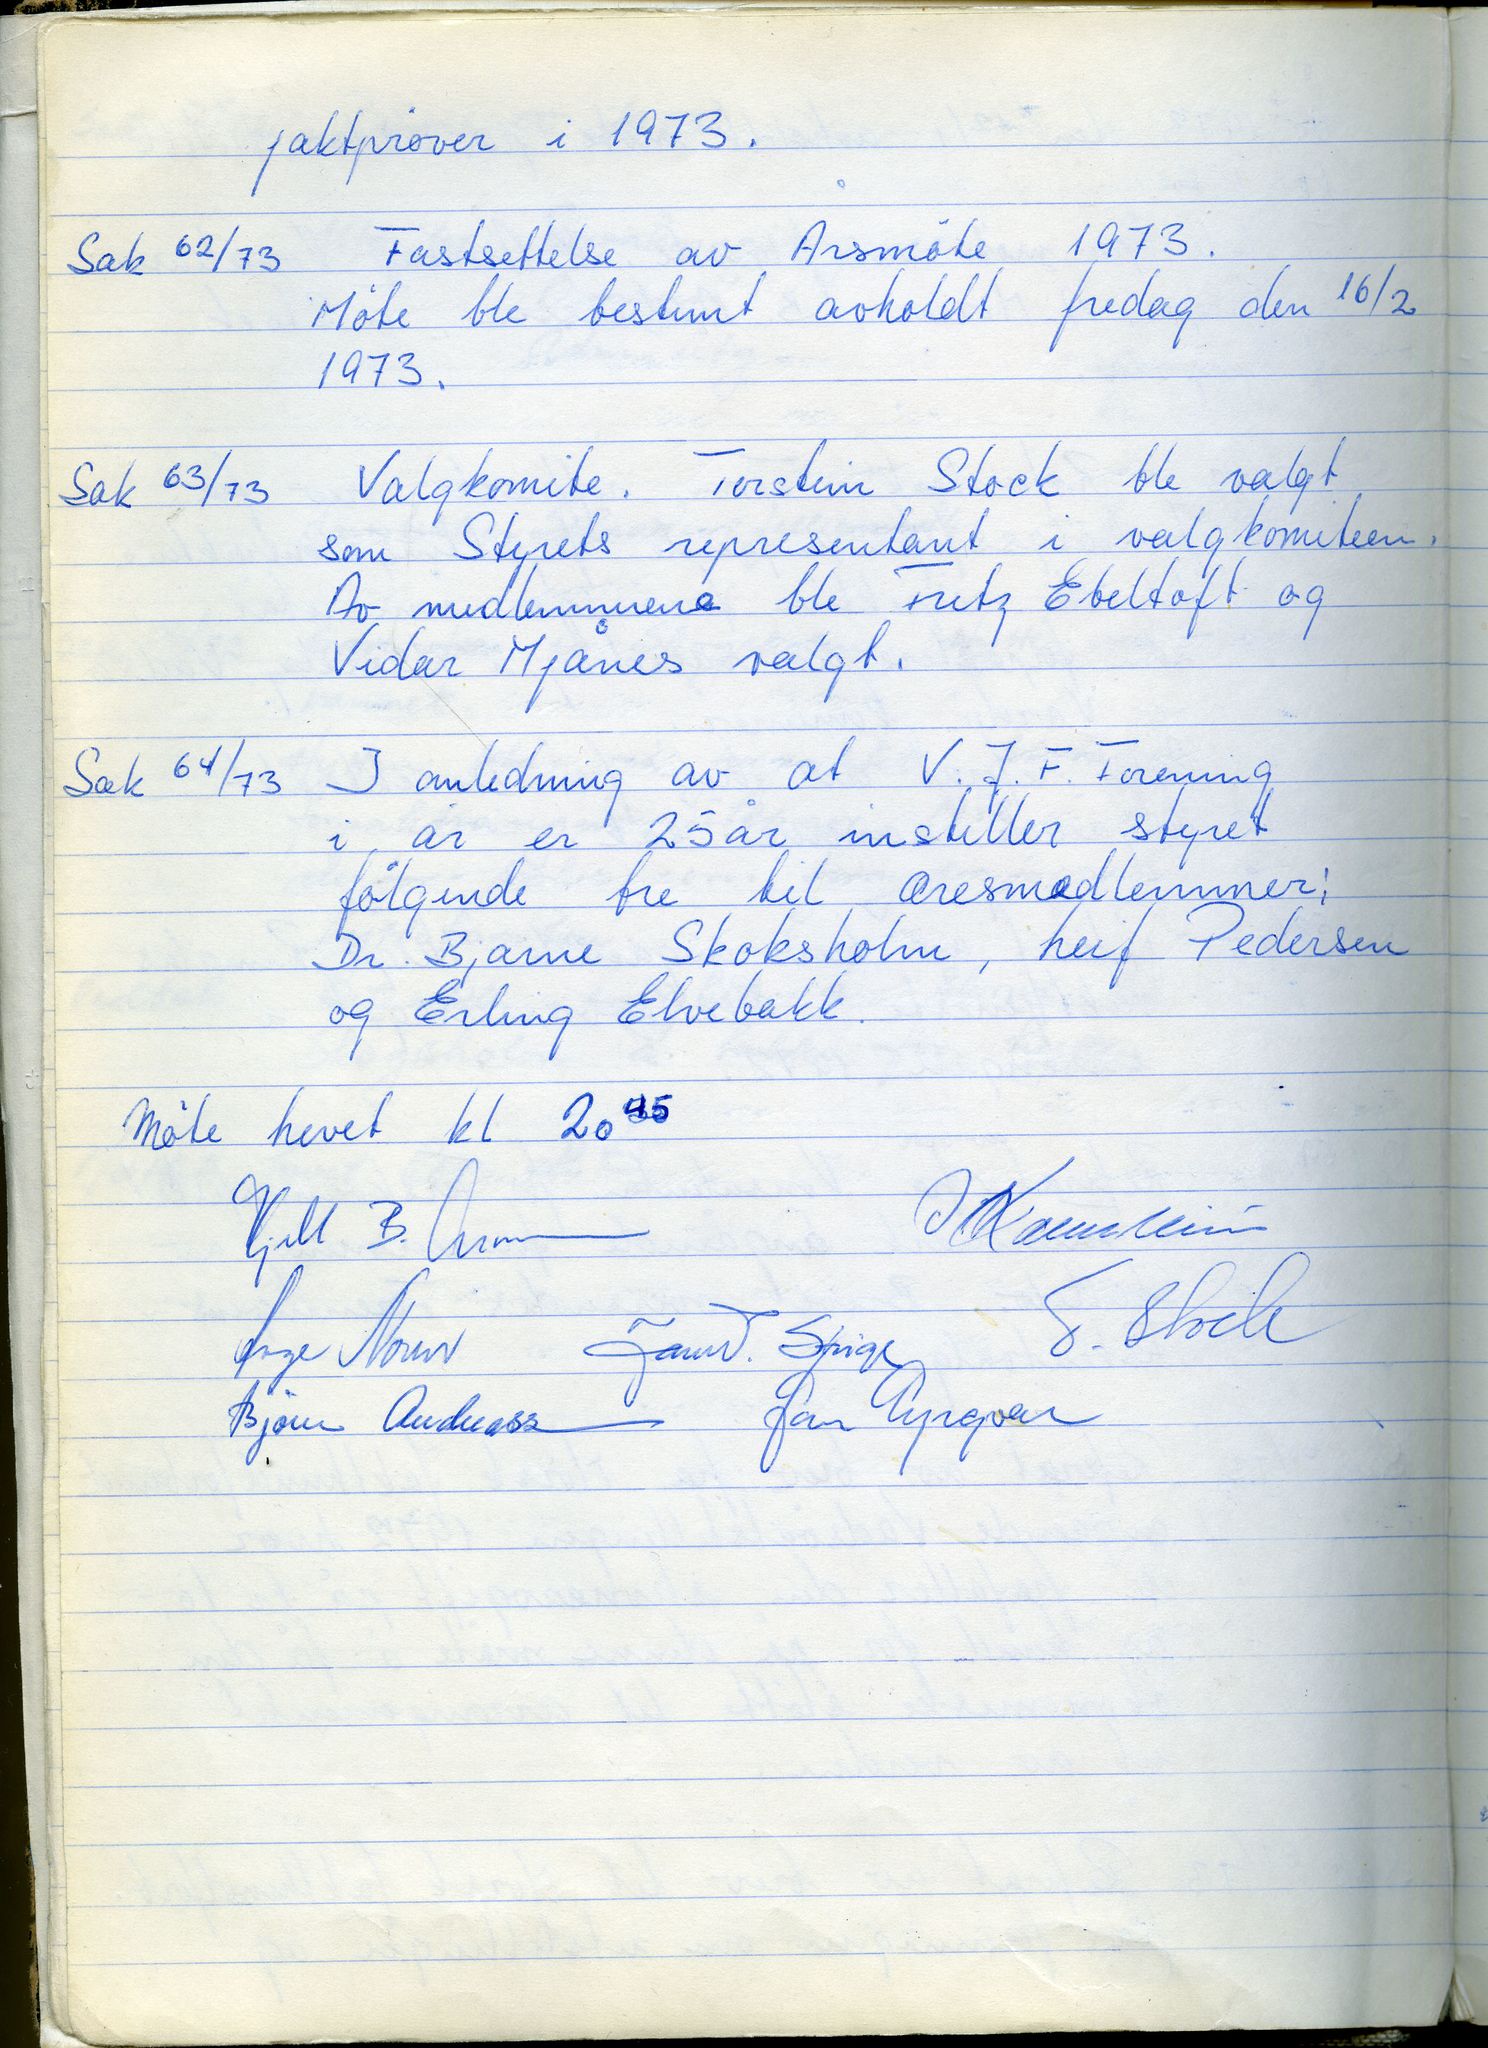 jaktprøver i 1973.
Sak 62/73 Fastsettelse av Årsmöte 1973.
Möte ble bestemt avholdt fredag den 16/2
1973.
Sak 63/73 Valgkomite. Torstein Stock ble valgt
som Styrets representant i valgkomiteen.
Av medlemmene ble Fritz Ebeltoft og
Vidar Mjånes valgt.
Sak 64/73 I anledning av at V.J.F. Forening
i år er 25 år instiller styret
følgende tre til æresmedlemmer:
Dr. Bjarne Skoksholm, Leif Pedersen
og Erling Elvebakk.
Möte hevet kl 20 45
Kjell B.
Inge
T. Stock
Björn Andreass
Jan